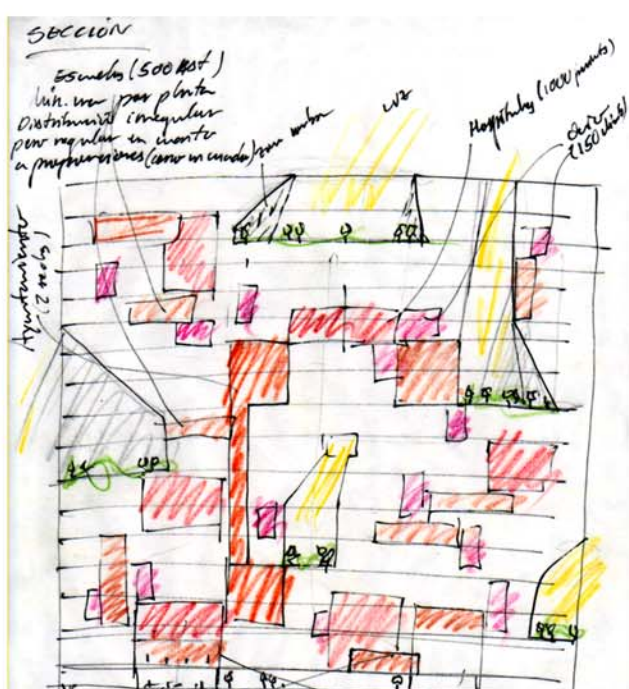 SECCIÓN
Escuelas (500 
Mín. una por planta
Distribución irregular
pero regular en cuanto
a proporciones (como un cuadro)
zona sombra
luz
Hospitales (1000
Ocio
(150
Ayuntamiento
(2